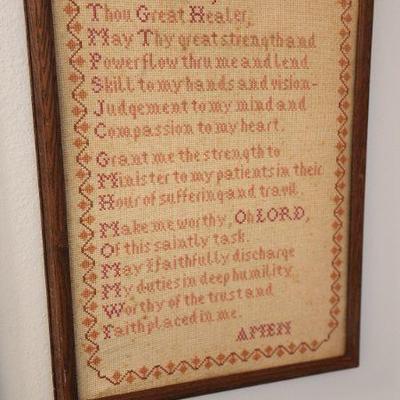 Thou Great Healer,
May Thy great strength and
Power flow thru me and lend
Skill to my hands and vision-
Judgement to my mind and
Compassion to my heart.
Grant me the strength to
Minister to my patients in their
Hour of suffering and travil.
Make me worthy, Oh LORD,
Of this saintly task.
May I faithfully discharge
My duties in deep humility
Worthy of the trust and
Faith placed in me.
AMEN